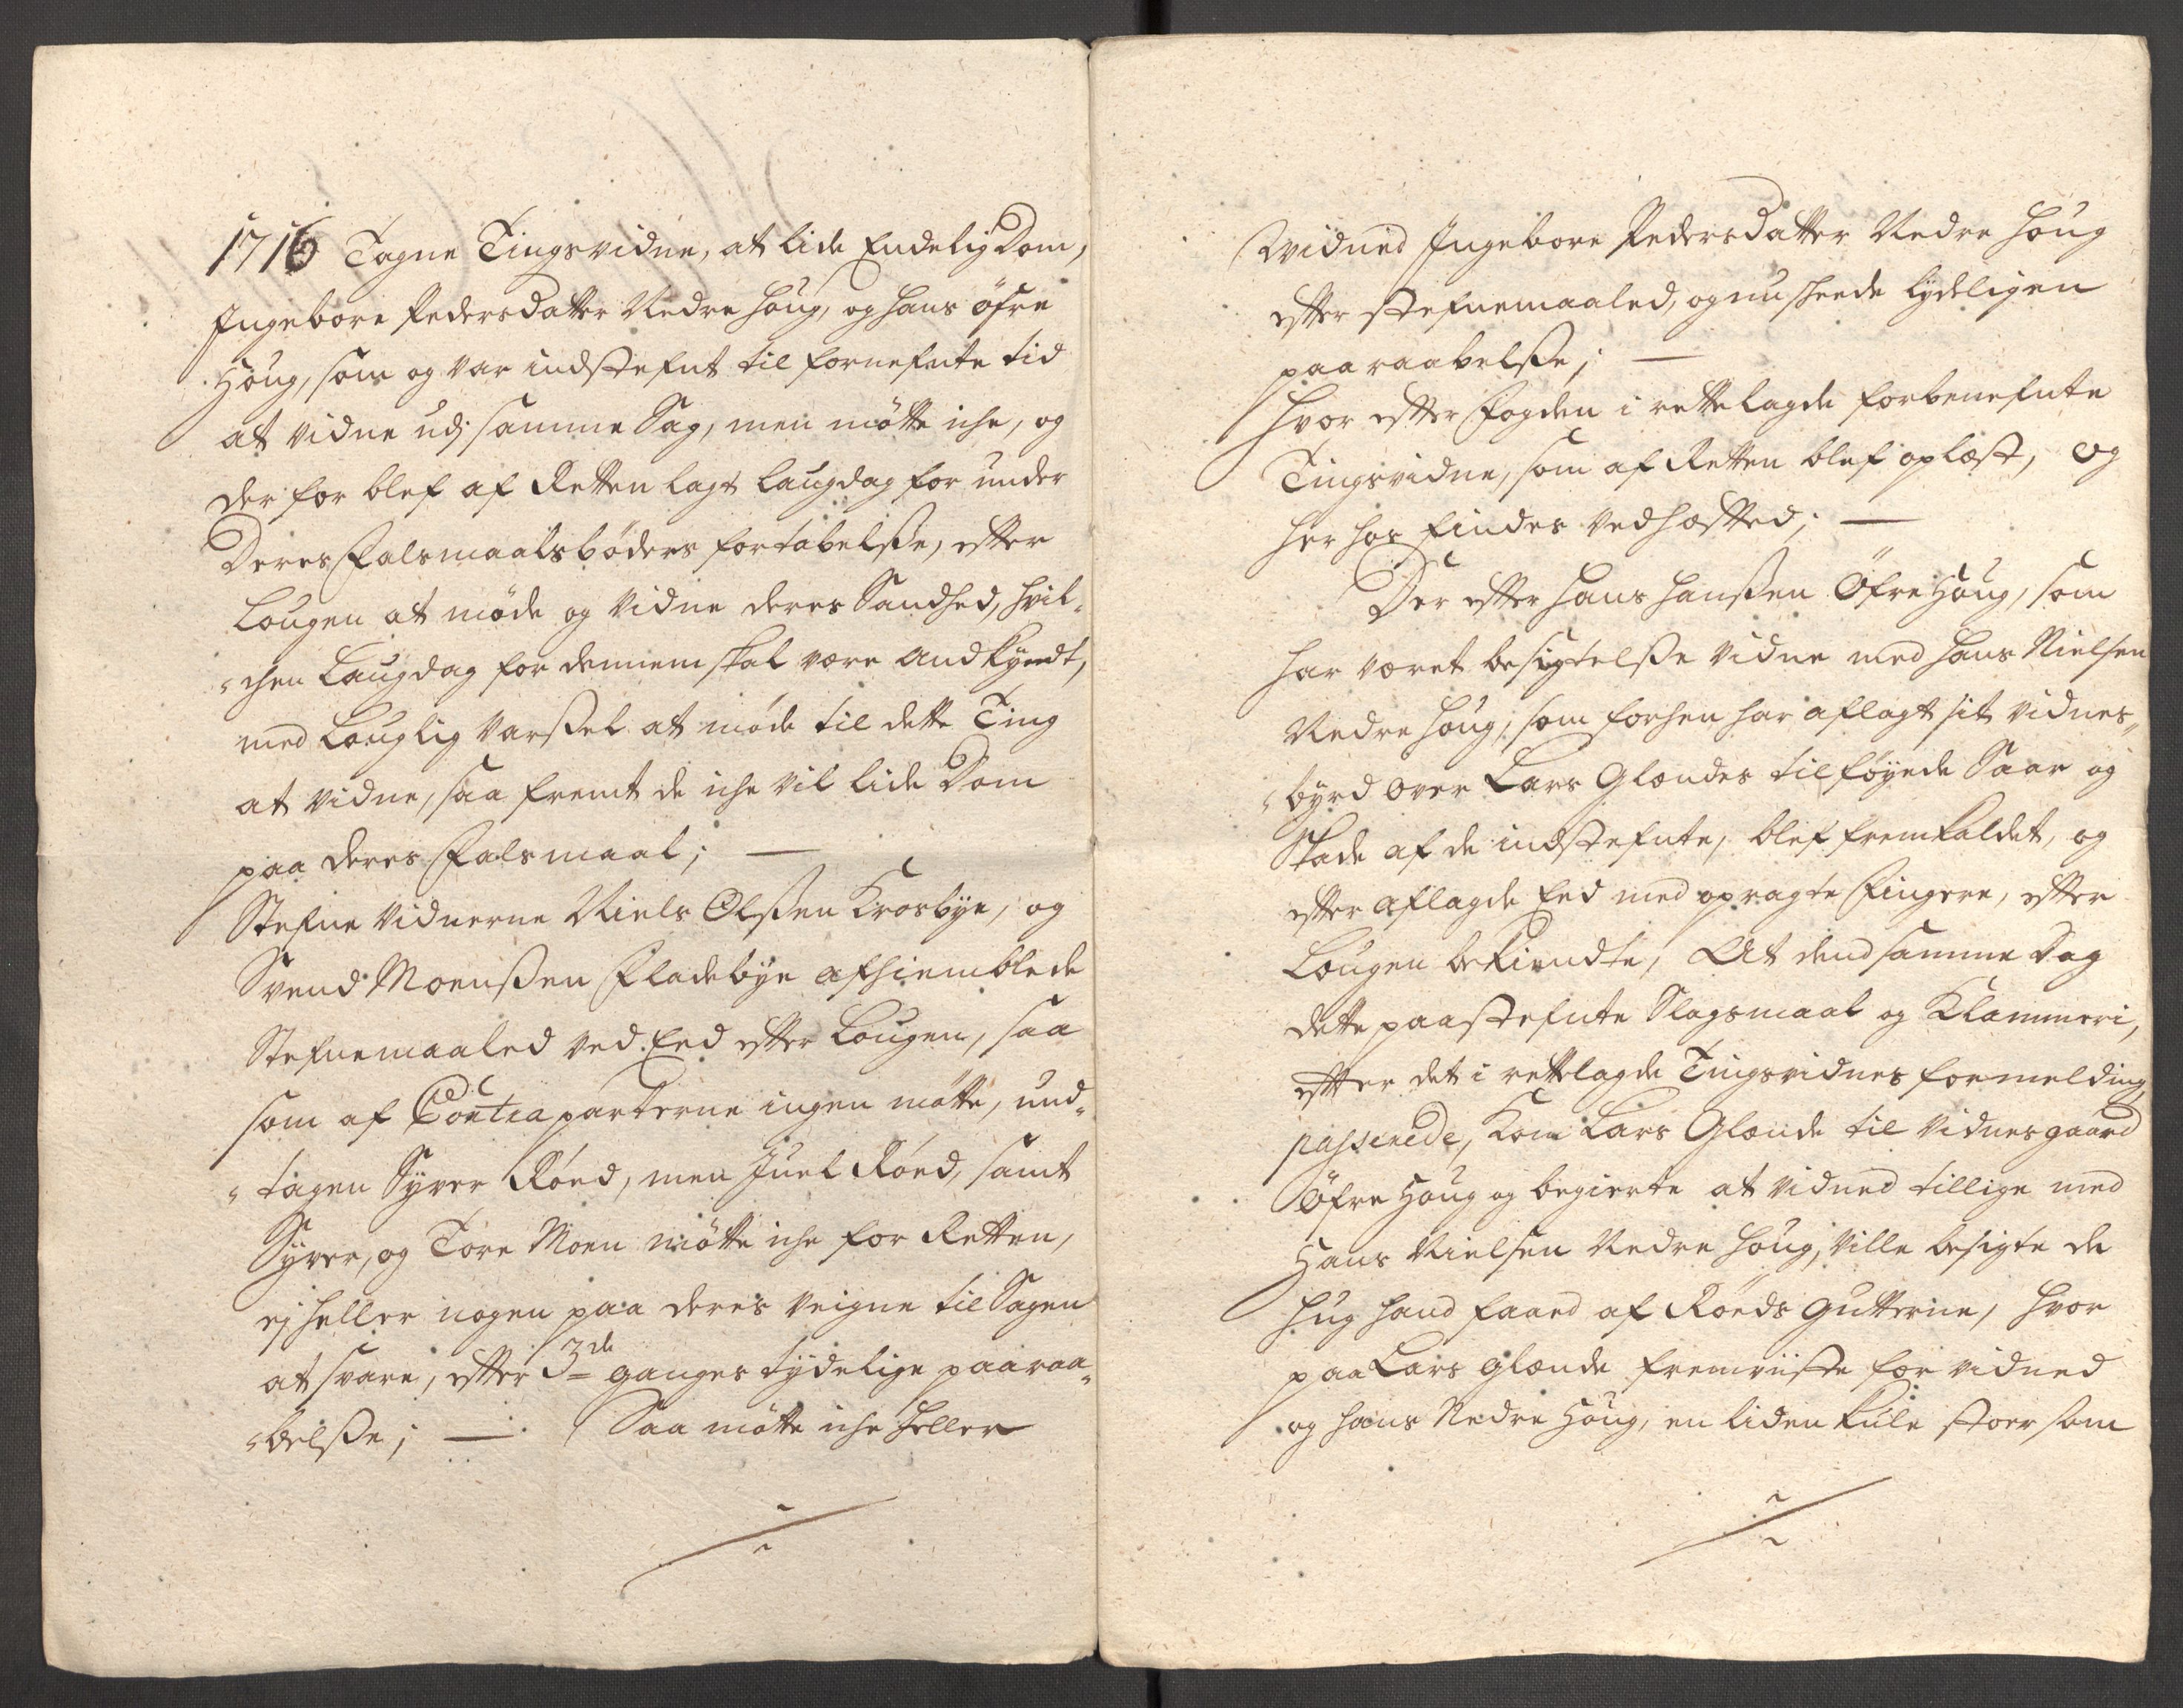 1716 Tagne Tingsvidne, at lide Endelig Dom,
Ingebore Pedersdatter Nedre Houg, og Hans öfre
Houg, som og var indstefnt til fornefnte tid
at vidne udj samme Sag, men mötte iche, og
der for blef af Retten lagt Laugdag for under
Deres Falsmaalsböders fortabelsse, efter
Lougen at möde og vidne deres Sandhed, hvil-
chen Laugdag for dennem skal være andkyndt,
med Louglig Varssel at möde til dette Ting
at vidne, saa fremt de iche vil lide Dom
paa deres Falsmaal; —
Stefne Vidnerne Niels Olssen Krosbye, og
Svend Monssen Fladebye afhiemblede
Stefnemaaled ved Eed efter Lougen, saa
som af Contraparterne ingen mötte, und-
tagen Syver Röed, men Juel Röed, samt
Syver, og Tore Moen mötte iche for Retten,
ej heller nogen paa deres veigne til Sagen
at svare, efter 3de ganges tydelige paaraa-
belsse; — Saa mötte iche heller
Widned Ingebore Pedersdatter Nedre Houg
efter stefnemaaled, og nu skeede lydeligen
paaraabelsse; —
Hvor efter Fogden i rettelagde forbenefnte
Tingsvidne, som af Retten blef oplæst, og
her hos findes vedhæfted; —
Der efter Hans Hanssen Öfre Houg, som
har været besigtelsse vidne med Hans Nielsen
Nedre Houg, som forhen har aflagt sit vidnes-
byrd over Lars Glændes tilföyede Saar og
Skade af de indstefnte, blef fremkaldet, og
efter aflagde Eed med opragte Fingere, efter
Lougen bekiendte, At dend samme Dag
dette paastefnte Slagsmaal og Klammeri,
efter det i rettelagde Tingsvidnes formelding,
passerede, kom Lars Glænde til vidnesgaard
Öfre Houg og begierte at vidned tillige med
Hans Nielsen Nedre Houg, ville besigte de
hug hand faaed af Röeds Gutterne, hvor
paa Lars Glænde fremviiste for vidned
og Hans Nedre Houg, en liden Kule stor som